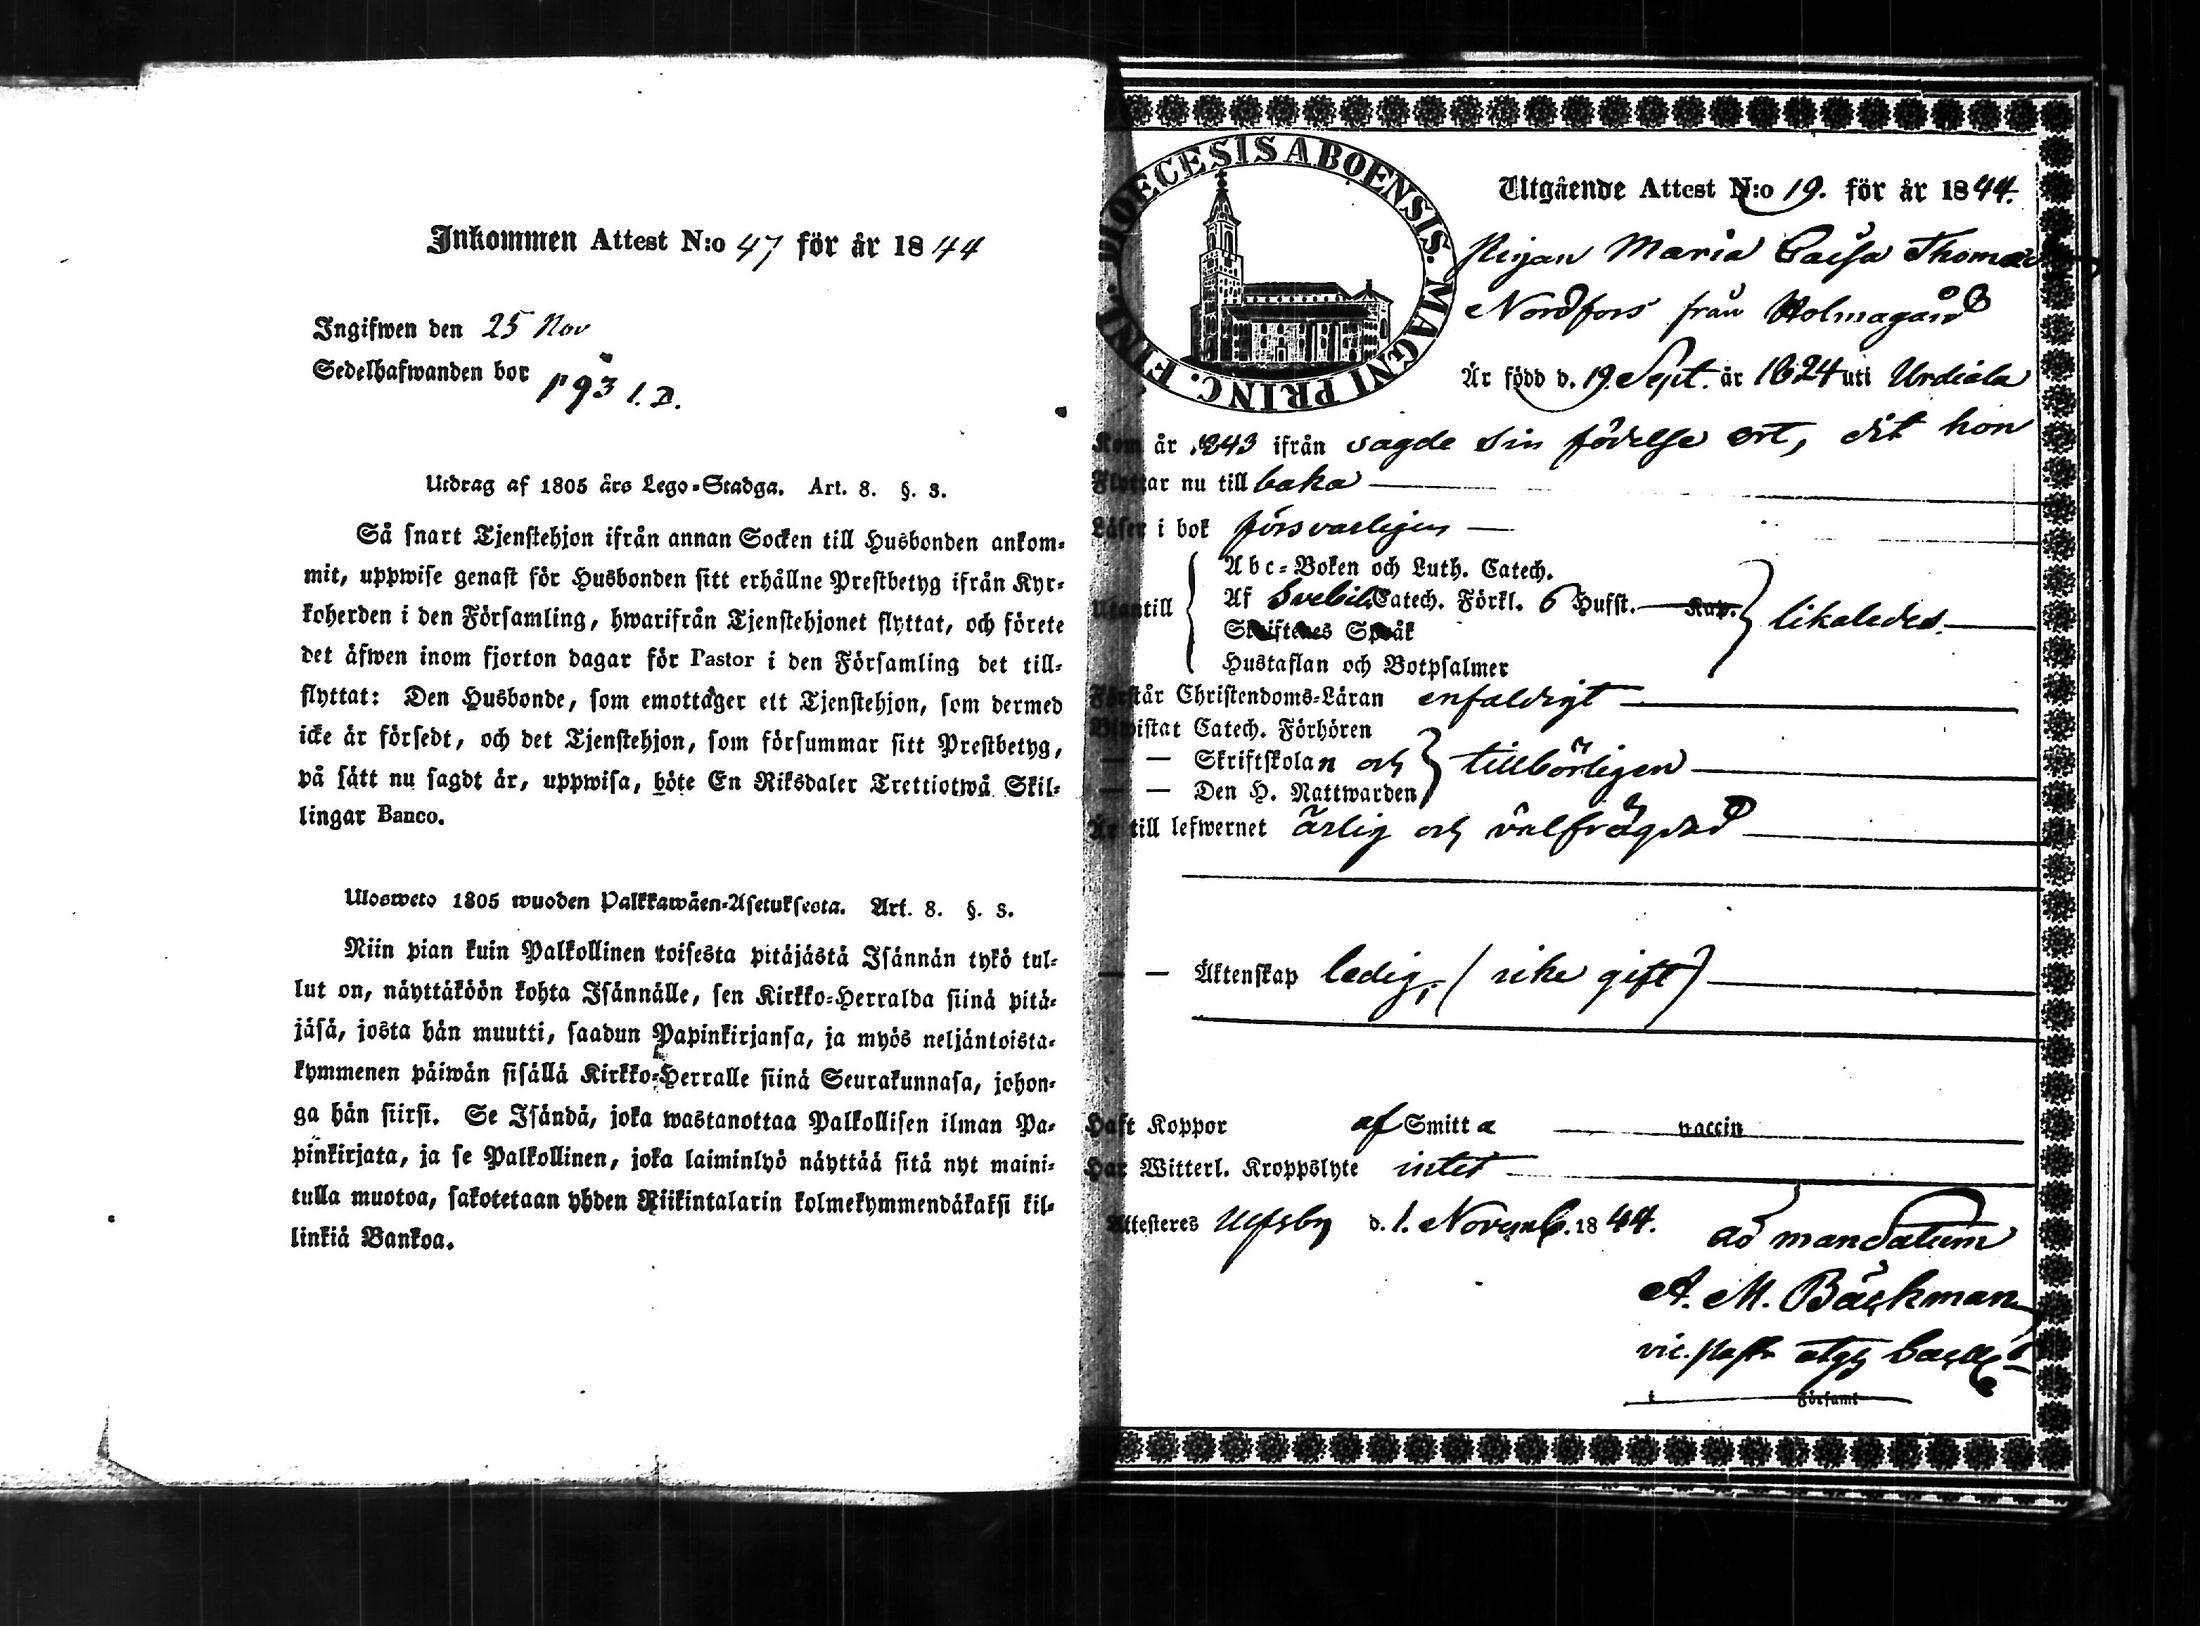 Inkommen Attest N:o 47 för år 1844
Ingifwen den 25 Nov
Sedelhafwanden bor p 93 l. D.
Utdrag af 1805 års Lego-Stadga. Art. 8. §. 3.
Så snart Tjenstehjon ifrån annan Socken till Husbonden ankom-
mit, uppwise genast för Husbonden sitt erhållne Prestbetyg ifrån Kyr-
koherden i den Församling, hwarifrån Tjenstehjonet flyttat, och förete
det äfwen inom fjorton dagar för Pastor i den Församling det till-
flyttat: Den Husbonde, som emottager ett Tjenstehjon, som dermed
icke är försedt, och det Tjenstehjon, som försummar sitt Prestbetyg,
på sätt nu sagdt är, uppwisa, böte En Riksdaler Trettiotwå Skil-
lingar Banco.
Ulosweto 1805 wuoden Palkkawäen-Asetuksesta. Art. 8. §. 3.
Niin pian kuin Palkollinen toisesta pitäjästä Isännän tykö tul-
lut on, näyttäköön kohta Isännälle, sen Kirkko-Herralda siinä pitä-
jäsä, josta hän muutti, saadun Papinkirjansa, ja myös neljäntoista-
kymmenen päiwän sisällä Kirkko-Herralle siinä Seurakunnasa, johon-
ga hän siirsi. Se Isändä, joka wastanottaa Palkollisen ilman Pa-
pinkirjata, ja se Palkollinen, joka laiminlyö näyttää sitä nyt maini-
tulla muotoa, sakotetaan yhden Riikintalarin kolmekymmendäkaksi kil-
linkiä Bankoa.
DIOECESIS ABOENSIS. MAGNI PRINC. FINL.
Utgående Attest N:o 19. för år 1844.
Pigan Maria Caisa Thomasd
Nordfors från Holmagård
Är född d. 19 Sept. år 1824 uti Urdiala
Kom år 1843 ifrån sagde sin födelse ort, dit hon
Flyttar nu till baka
Läser i bok försvarligen
Utantill
Abc-Boken och Luth. Catech.
Af Svebil. Catech. Förkl. 6 Hufst. Kap.
Skriftenes Språk
Hustaflan och Botpsalmer
likaledes.
Förstår Christendoms-Läran enfaldigt
Biwistat Catech. Förhören
— — Skriftskolan och
— — Den H. Nattwarden
tillbörligen
Är till lefwernet ärlig och välfrägdad
— — Äktenskap ledig, (icke gift)
Haft Koppor af Smitta vaccin
Har Witterl. Kroppslyte intet
Attesteres Ulfsby d. 1. Novemb. 1844.
ad mandatum
A. M. Bäckman
vic. past.
i Församl